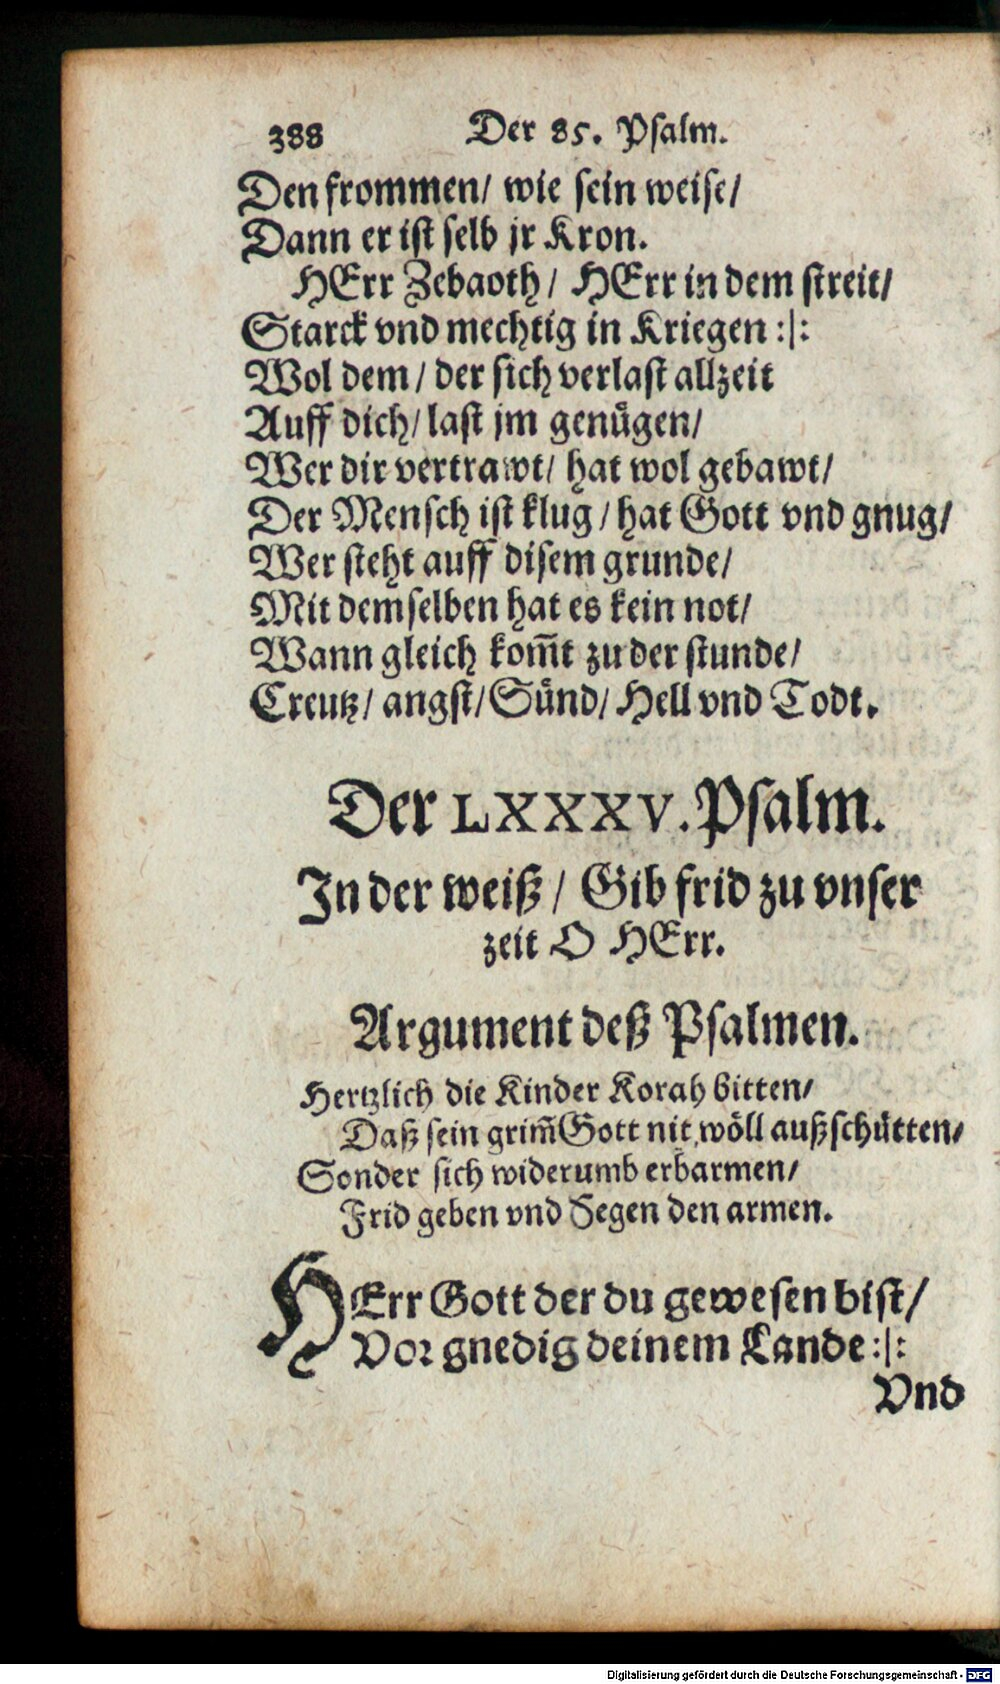 388 Der 85. Psalm.
Den frommen/ wie sein weise/
Dann er ist selb jr Kron.
HErr Zebaoth/ HErr in dem streit/
Starck vnd mechtig in Kriegen :|:
Wol dem/ der sich verlast allzeit
Auff dich/ last jm genuͤgen/
Wer dir vertrawt/ hat wol gebawt/
Der Mensch ist klug/ hat Gott vnd gnug/
Wer steht auff disem grunde/
Mit demselben hat es kein not/
Wann gleich kom̃t zu der stunde/
Creutz/ angst/ Suͤnd/ Hell vnd Todt.
Der LXXXV. Psalm.
In der weiß/ Gib frid zu vnser
zeit O HErr.
Argument deß Psalmen.
Hertzlich die Kinder Korah bitten/
Daß sein grim̃ Gott nit wöll außschütten/
Sonder sich widerumb erbarmen/
Frid geben vnd Segen den armen.
HErr Gott der du gewesen bist/
Vor gnedig deinem Lande :|:
Vnd
Digitalisierung gefördert durch die Deutsche Forschungsgemeinschaft - DFG